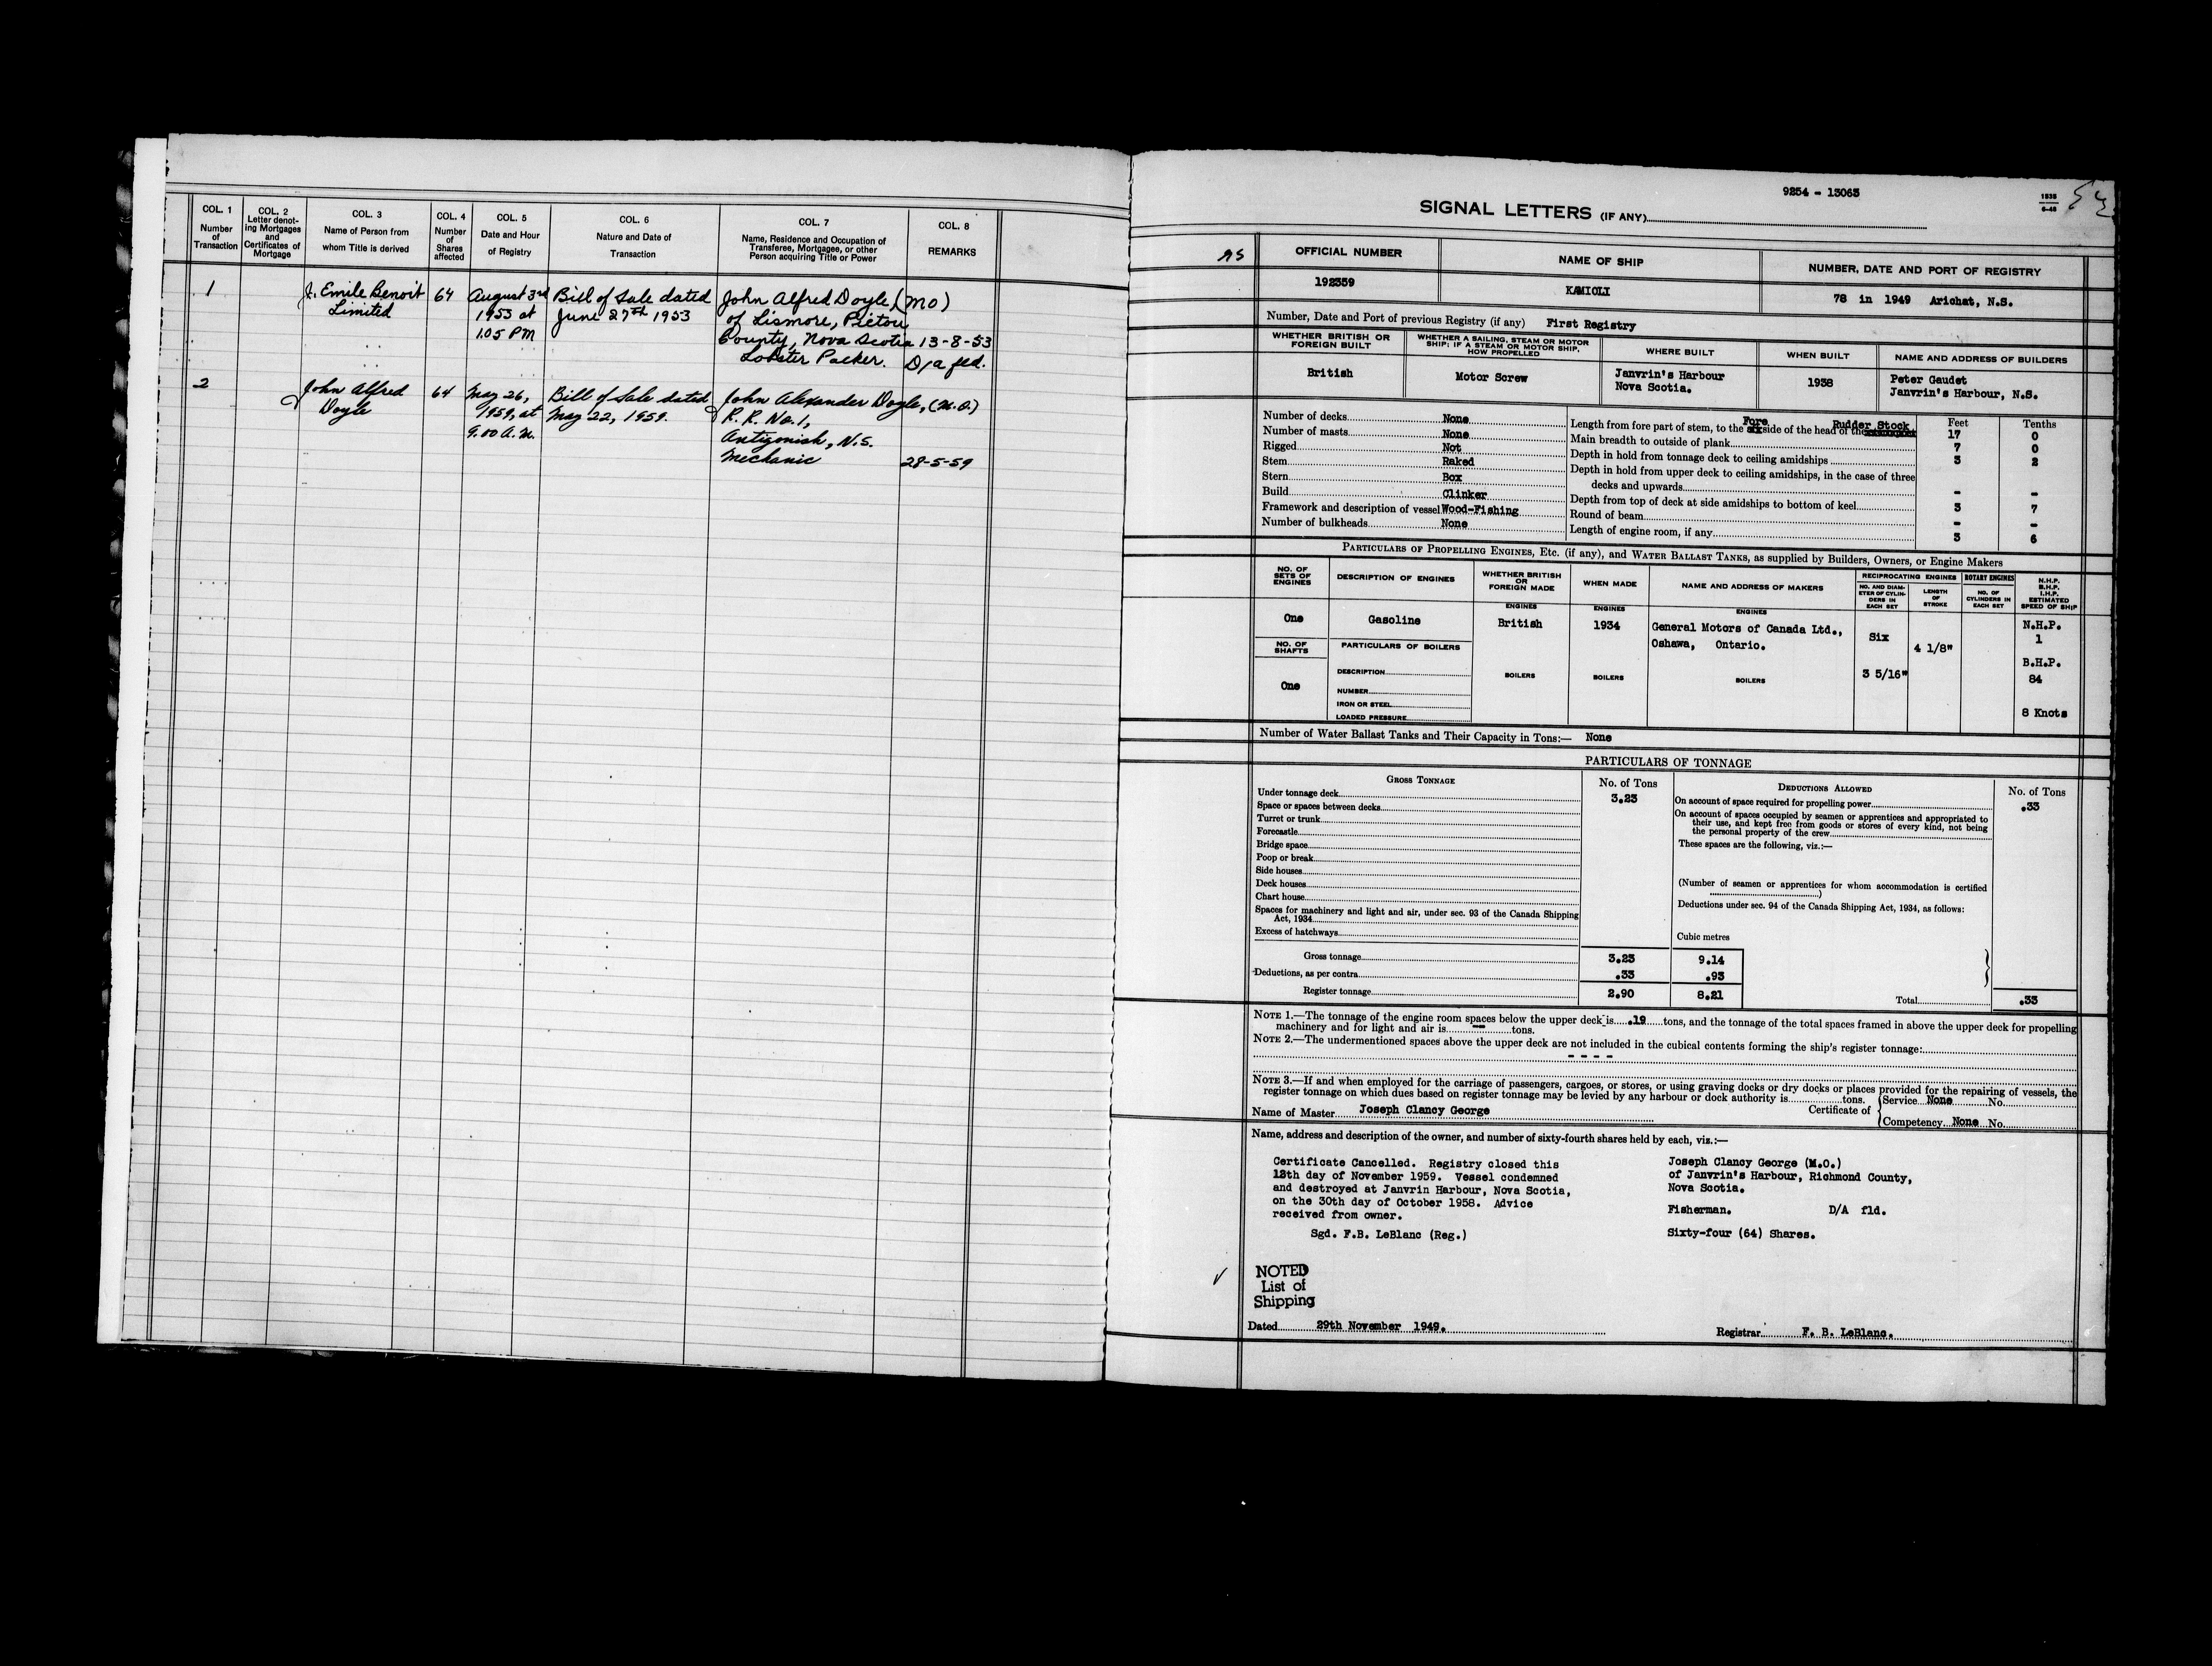 COL. 1
Number
of
Transaction
COL. 2
Letter denot-
ing Mortgages
and
Certificates of
Mortgage
COL. 3
Name of Person from
whom Title is derived
COL. 4
Number
of
Shares
affected
COL. 5
Date and Hour
of Registry
COL. 6
Nature and Date of
Transaction
COL. 7
Name, Residence and Occupation of
Transferee, Mortgagee, or other
Person acquiring Title or Power
COL. 8
REMARKS
1
J. Emile Benoit
Limited
64
August 3rd
1953 at
1.05 PM
Bill of Sale dated
June 27th 1953
John Alfred Doyle, (MO)
of Lismore, Pictou
County, Nova Scotia
Lobster Packer.
13-8-53
D/a fld.
2
John Alfred
Doyle
64
May 26,
1959, at
9.00 A.M.
Bill of Sale dated
May 22, 1959.
John Alexander Doyle, (M.O.)
R. R. No. 1,
Antigonish, N.S.
Mechanic
28-5-59
9254 - 13063
1535
6-48
SIGNAL LETTERS (IF ANY)
OFFICIAL NUMBER
192359
NAME OF SHIP
KAMIOLI
NUMBER, DATE AND PORT OF REGISTRY
78 in 1949 Arichat, N.S.
Number, Date and Port of previous Registry (if any) First Registry
WHETHER BRITISH OR
FOREIGN BUILT
British
WHETHER A SAILING, STEAM OR MOTOR
SHIP; IF A STEAM OR MOTOR SHIP,
HOW PROPELLED
Motor Screw
WHERE BUILT
Janvrin's Harbour
Nova Scotia.
WHEN BUILT
1938
NAME AND ADDRESS OF BUILDERS
Peter Gaudet
Janvrin's Harbour, N.S.
Number of decks None
Number of masts None
Rigged Not
Stem Raked
Stern Box
Build Clinker
Framework and description of vessel Wood-Fishing
Number of bulkheads None
Feet Tenths
Fore Rudder Stock
Length from fore part of stem, to the side of the head of the 17 0
Main breadth to outside of plank 7 0
Depth in hold from tonnage deck to ceiling amidships 3 2
Depth in hold from upper deck to ceiling amidships, in the case of three
decks and upwards - -
Depth from top of deck at side amidships to bottom of keel 3 7
Round of beam - -
Length of engine room, if any 3 6
PARTICULARS OF PROPELLING ENGINES, ETC. (if any), and WATER BALLAST TANKS, as supplied by Builders, Owners, or Engine Makers
NO. OF
SETS OF
ENGINES
One
NO. OF
SHAFTS
One
DESCRIPTION OF ENGINES
Gasoline
PARTICULARS OF BOILERS
DESCRIPTION
NUMBER
IRON OR STEEL
LOADED PRESSURE
WHETHER BRITISH
OR
FOREIGN MADE
ENGINES
British
BOILERS
WHEN MADE
ENGINES
1934
BOILERS
NAME AND ADDRESS OF MAKERS
ENGINES
General Motors of Canada Ltd.,
Oshawa, Ontario.
BOILERS
RECIPROCATING ENGINES
NO. AND DIAM-
ETER OF CYLIN-
DERS IN
EACH SET
Six
3 5/16"
LENGTH
OF
STROKE
4 1/8"
ROTARY ENGINES
NO. OF
CYLINDERS IN
EACH SET
N.H.P.
B.H.P.
I.H.P.
ESTIMATED
SPEED OF SHIP
N.H.P.
1
B.H.P.
84
8 Knots
Number of Water Ballast Tanks and Their Capacity in Tons:— None
PARTICULARS OF TONNAGE
GROSS TONNAGE
No. of Tons
Under tonnage deck 3.23
Space or spaces between decks
Turret or trunk
Forecastle
Bridge space
Poop or break
Side houses
Deck houses
Chart house
Spaces for machinery and light and air, under sec. 93 of the Canada Shipping
Act, 1934
Excess of hatchways
Cubic metres
Gross tonnage 3.23 9.14
Deductions, as per contra .33 .93
Register tonnage 2.90 8.21
DEDUCTIONS ALLOWED
No. of Tons
On account of space required for propelling power .33
On account of spaces occupied by seamen or apprentices and appropriated to
their use, and kept free from goods or stores of every kind, not being
the personal property of the crew
These spaces are the following, viz.:—
(Number of seamen or apprentices for whom accommodation is certified
)
Deductions under sec. 94 of the Canada Shipping Act, 1934, as follows:
Total .33
NOTE 1.—The tonnage of the engine room spaces below the upper deck is .19 tons, and the tonnage of the total spaces framed in above the upper deck for propelling
machinery and for light and air is — tons.
NOTE 2.—The undermentioned spaces above the upper deck are not included in the cubical contents forming the ship's register tonnage:
- - - -
NOTE 3.—If and when employed for the carriage of passengers, cargoes, or stores, or using graving docks or dry docks or places provided for the repairing of vessels, the
register tonnage on which dues based on register tonnage may be levied by any harbour or dock authority is tons.
Name of Master Joseph Clancy George
Certificate of
Service None No.
Competency None No.
Name, address and description of the owner, and number of sixty-fourth shares held by each, viz.:—
Certificate Cancelled. Registry closed this
12th day of November 1959. Vessel condemned
and destroyed at Janvrin Harbour, Nova Scotia,
on the 30th day of October 1958. Advice
received from owner.
Sgd. F.B. LeBlanc (Reg.)
Joseph Clancy George (M.O.)
of Janvrin's Harbour, Richmond County,
Nova Scotia.
Fisherman. D/A fld.
Sixty-four (64) Shares.
NOTED
List of
Shipping
Dated 29th November 1949.
Registrar F. B. LeBlanc.